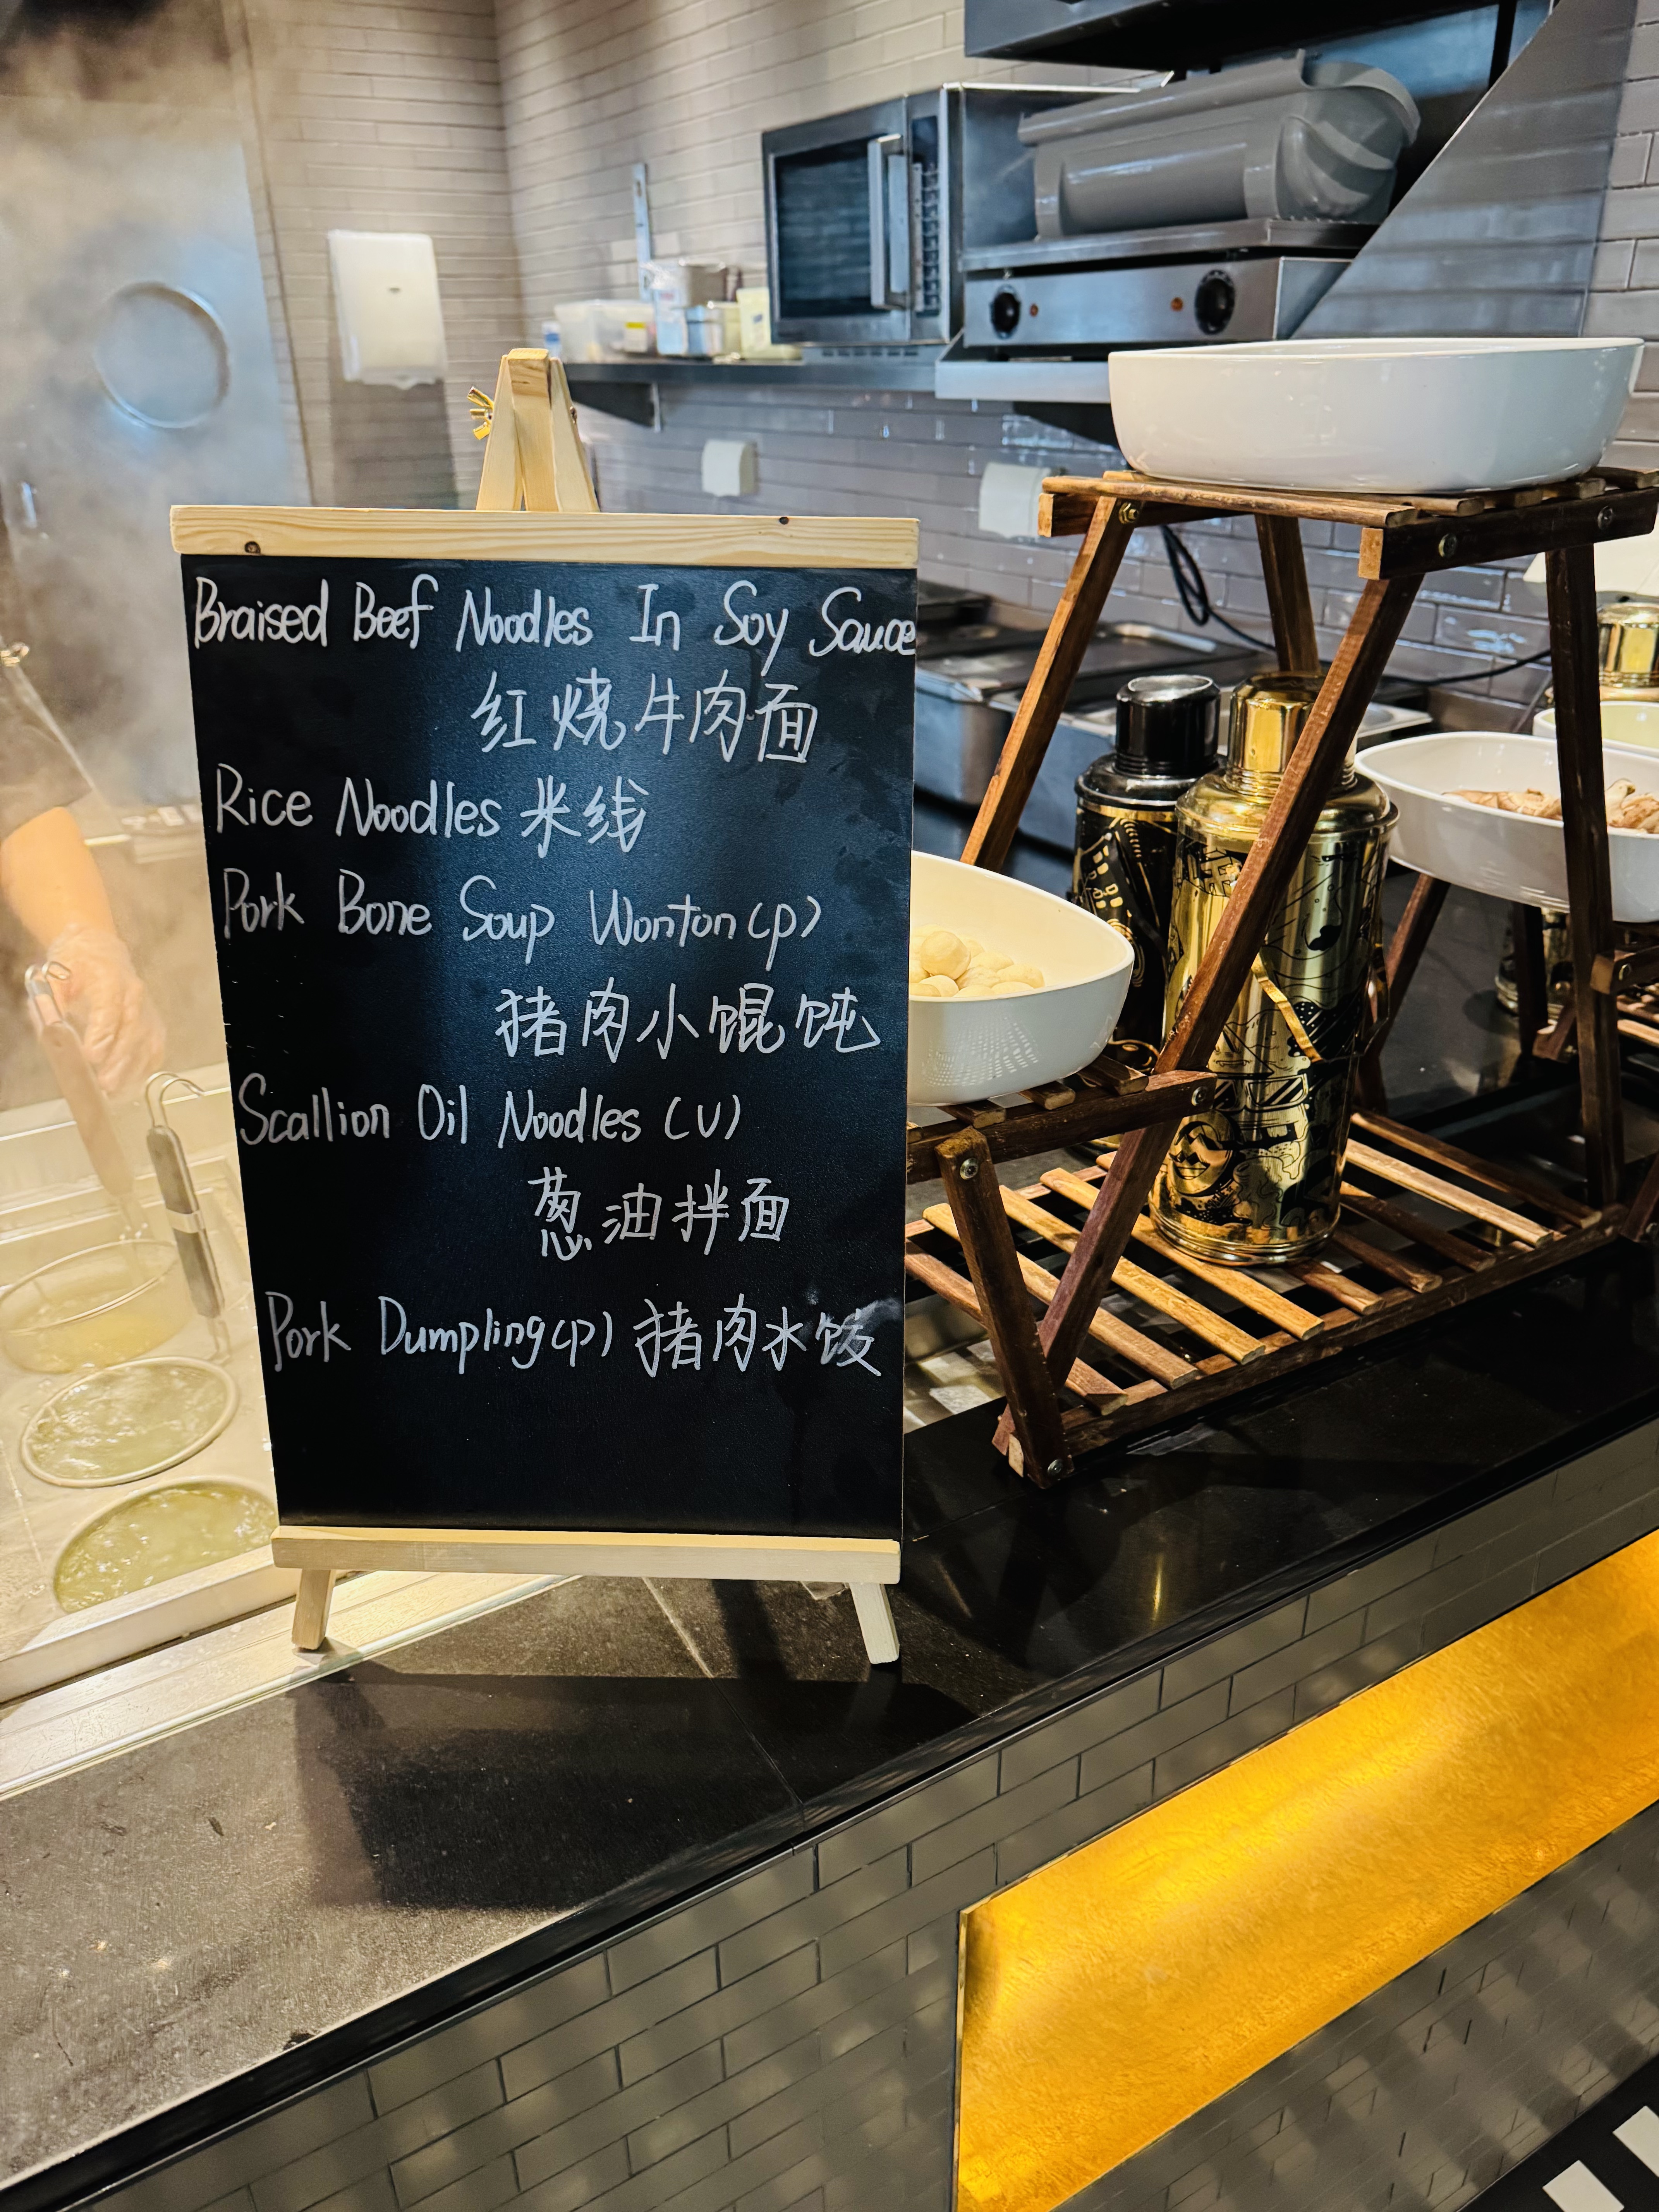 Braised Beef Noodles In Soy Sauce
红烧牛肉面
Rice Noodles 米线
Pork Bone Soup Wonton(p)
猪肉小馄饨
Scallion Oil Noodles (V)
葱油拌面
Pork Dumpling(p) 猪肉水饺